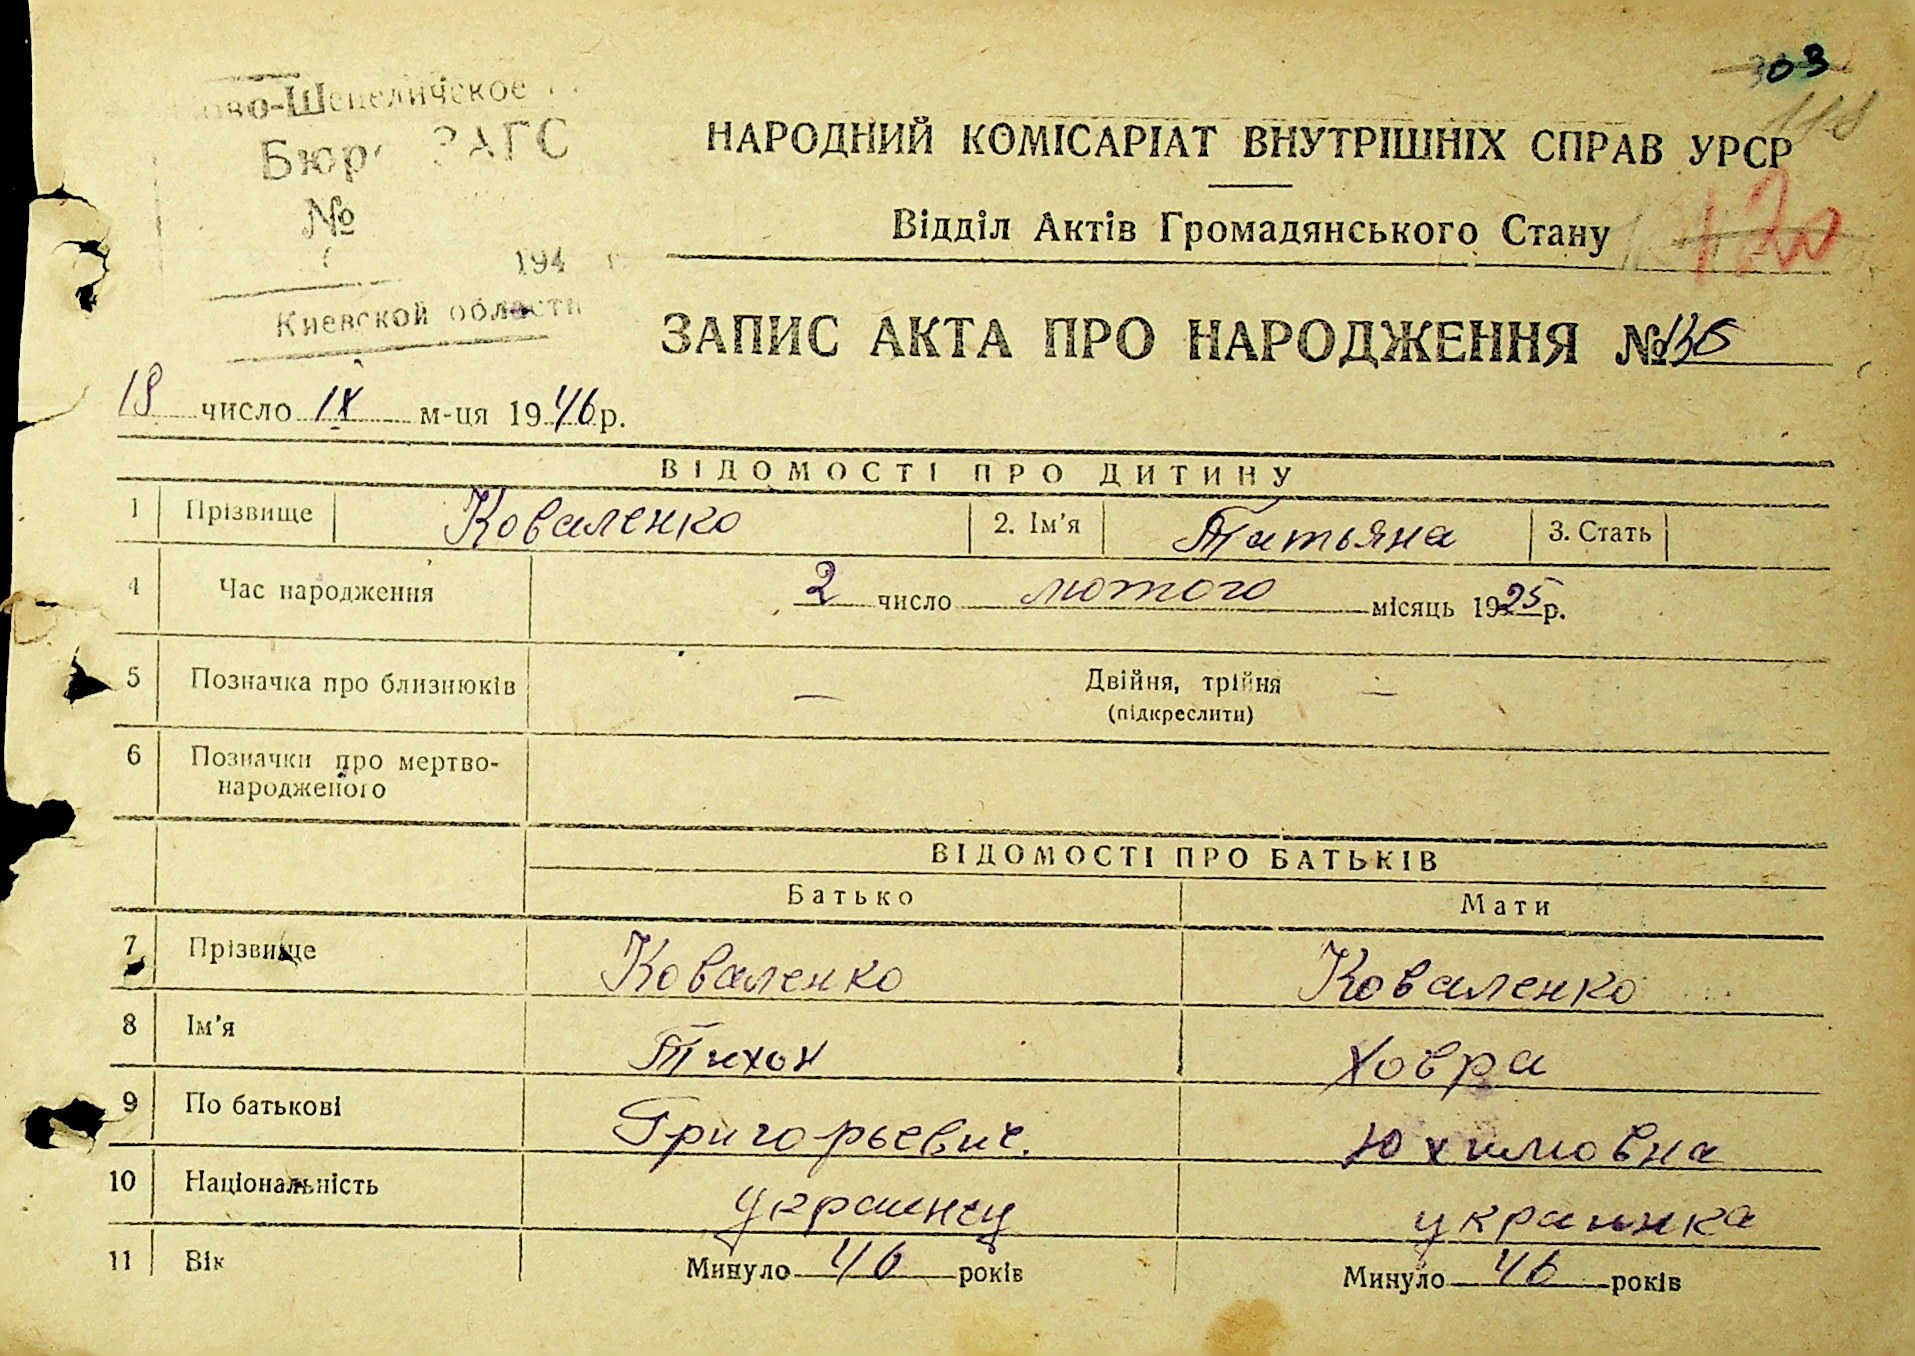 Шепеличское
Бюро ЗАГС
№
194 г.
Киевской области
НАРОДНИЙ КОМІСАРІАТ ВНУТРІШНІХ СПРАВ УРСР
Відділ Актів Громадянського Стану
120
ЗАПИС АКТА ПРО НАРОДЖЕННЯ №
18 число IX м-ця 1946 р.
ВІДОМОСТІ ПРО ДИТИНУ
1 Прізвище Коваленко 2. Ім'я Татьяна 3. Стать
4 Час народження 2 число лютого місяць 1925 р.
5 Позначка про близнюків — Двійня, трійня —
(підкреслити)
6 Позначки про мертво-
народженого
ВІДОМОСТІ ПРО БАТЬКІВ
Батько Мати
7 Прізвище Коваленко Коваленко
8 Ім'я Тихон Ховра
9 По батькові Григорьевич. Юхимовна
10 Національність украинец украинка
11 Вік Минуло 46 років Минуло 46 років